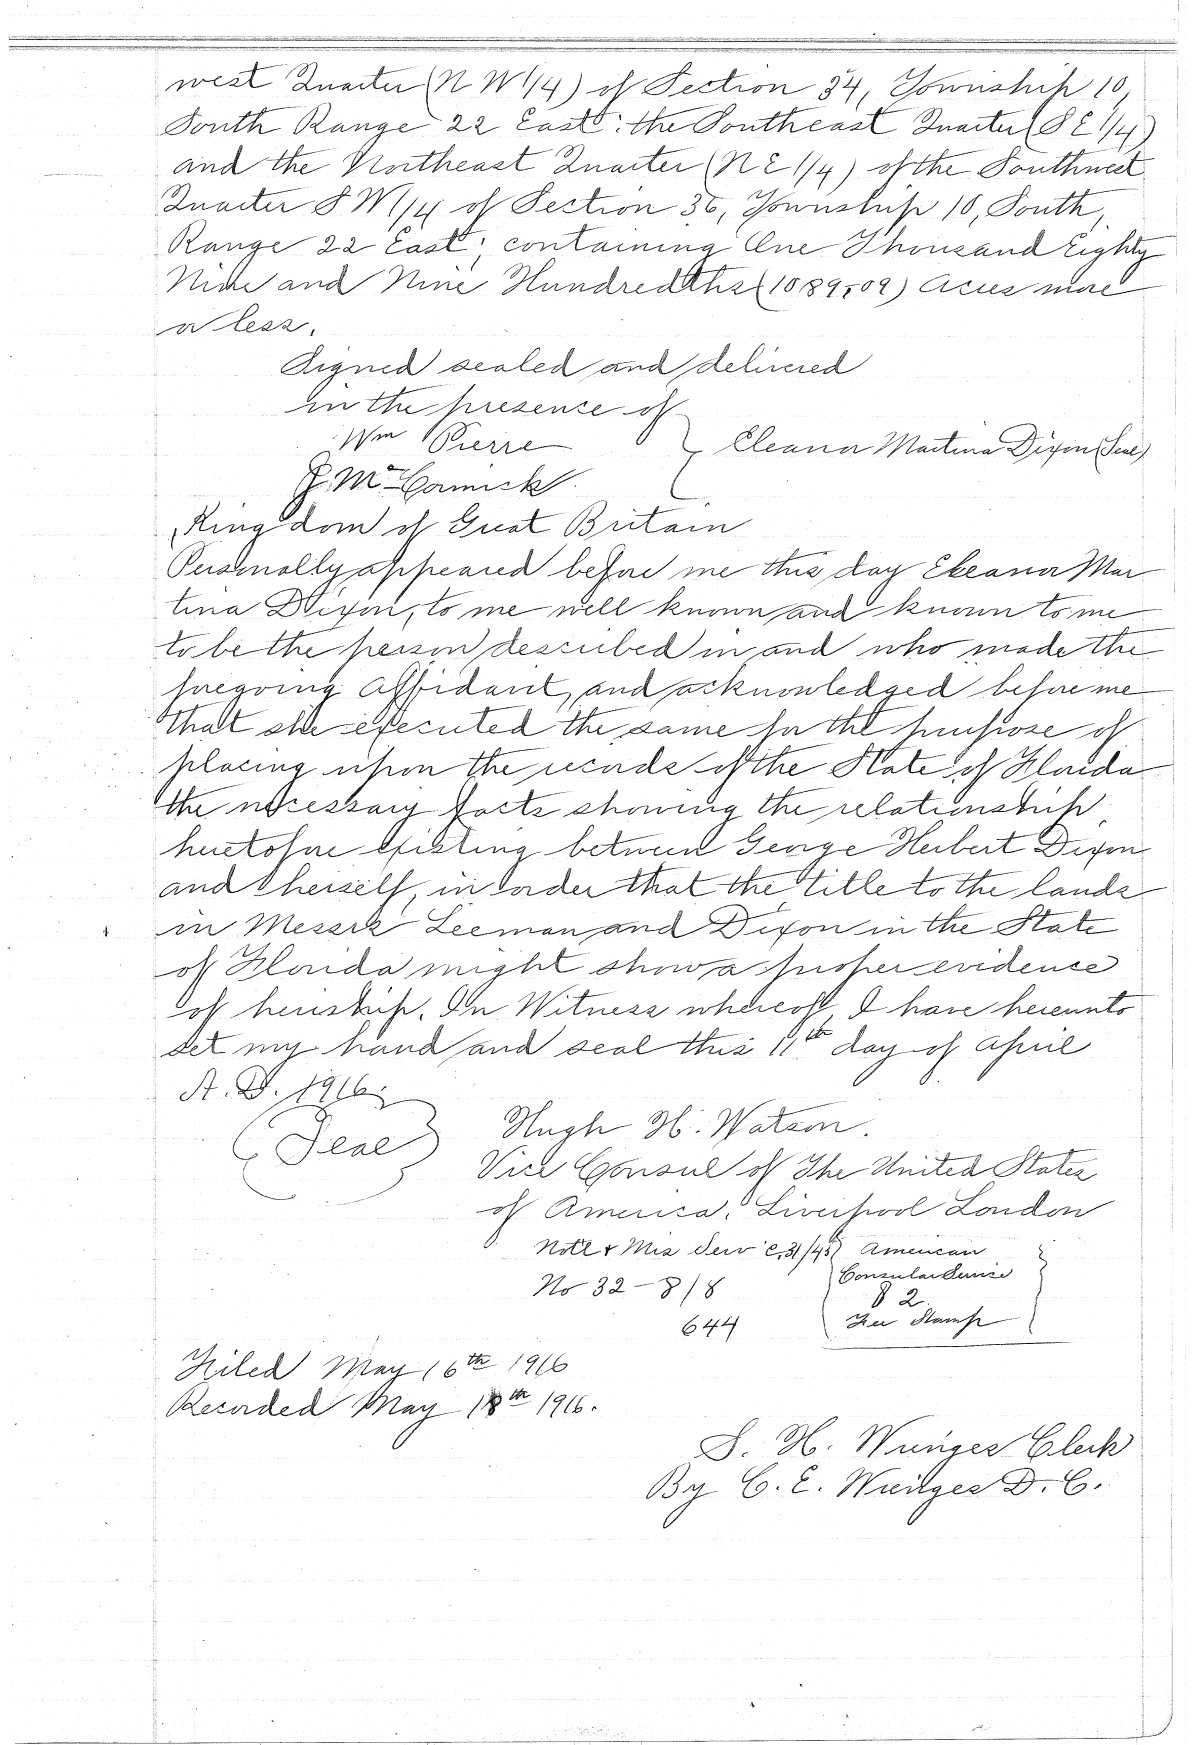 west Quarter (N W 1/4) of Section 34, Township 10,
South Range 22 East: the Southeast Quarter (S E 1/4)
and the Northeast Quarter (N E 1/4) of the Southwest
Quarter S W 1/4 of Section 36, Township 10, South,
Range 22 East; containing One Thousand Eighty
Nine and Nine Hundredths (1089,09) Acres more
or less.
Signed sealed and delivered
in the presence of
Wm Pierre
Eleanor Martina Dixon (Seal)
J. McCormick.
Kingdom of Great Britain
Personally appeared before me this day Eleanor Mar
tina Dixon, to me well known and known to me
to be the person described in and who made the
foregoing Affidavit, and acknowledged before me
that she executed the same for the purpose of
placing upon the records of the State of Florida
the necessary facts showing the relationship
heretofore existing between George Herbert Dixon
and herself, in order that the title to the lands
in Messrs Leeman and Dixon in the State
of Florida might show a proper evidence
of heirship. In Witness whereof, I have hereunto
set my hand and seal this 11th day of April
A. D. 1916.
(Seal)
Hugh H. Watson.
Vice Consul of The United States
of America. Liverpool London
Note & Mis Serv c. 31/45 American
Consular Service
No 32-8/8
$ 2.
644
Fee Stamp
Filed May 16th 1916
Recorded May 18th 1916.
S. H. Wienges Clerk
By C. E. Wienges D. C.